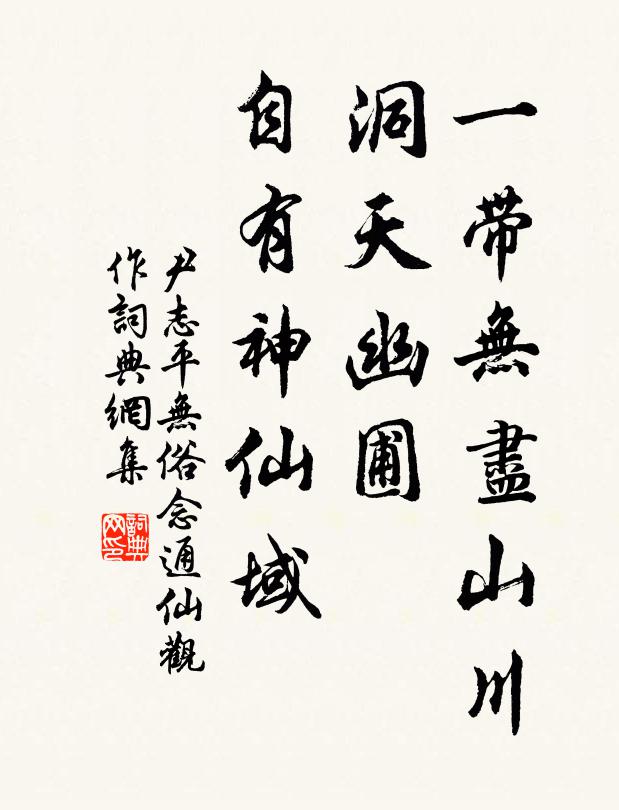 一帶無盡山川
洞天幽圃
自有神仙域
尹志平無俗念通仙觀
作詞典網集
詞典网印